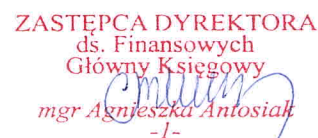 ZASTĘPCA DYREKTORA
ds. Finansowych
Główny Księgowy
mgr Agnieszka Antosiak
-1-